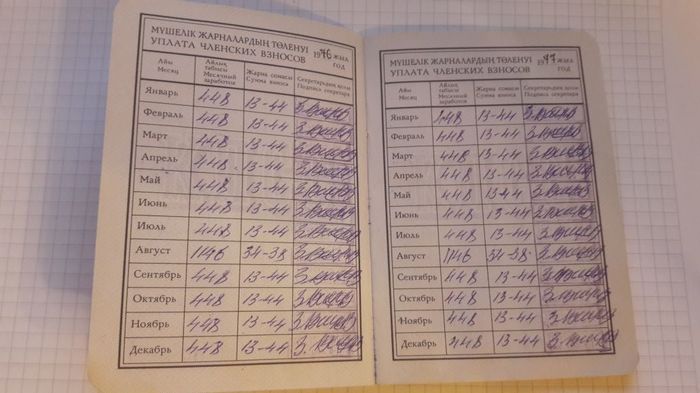 МҮШЕЛІК ЖАРНАЛАРДЫҢ ТӨЛЕНУІ
УПЛАТА ЧЛЕНСКИХ ВЗНОСОВ 1976 жыл год
Айы Месяц Айлық табысы Месячный заработок Жарна сомасы Сумма взноса Секретарьдың қолы Подпись секретаря
Январь 448 13-44
Февраль 448 13-44
Март 448 13-44
Апрель 448 13-44
Май 448 13-44
Июнь 448 13-44
Июль 448 13-44
Август 1146 34-38
Сентябрь 448 13-44
Октябрь 448 13-44
Ноябрь 448 13-44
Декабрь 448 13-44
МҮШЕЛІК ЖАРНАЛАРДЫҢ ТӨЛЕНУІ
УПЛАТА ЧЛЕНСКИХ ВЗНОСОВ 1977 жыл год
Айы Месяц Айлық табысы Месячный заработок Жарна сомасы Сумма взноса Секретарьдың қолы Подпись секретаря
Январь 448 13-44
Февраль 448 13-44
Март 448 13-44
Апрель 448 13-44
Май 448 13-44
Июнь 448 13-44
Июль 448 13-44
Август 1146 34-38
Сентябрь 448 13-44
Октябрь 448 13-44
Ноябрь 448 13-44
Декабрь 448 13-44